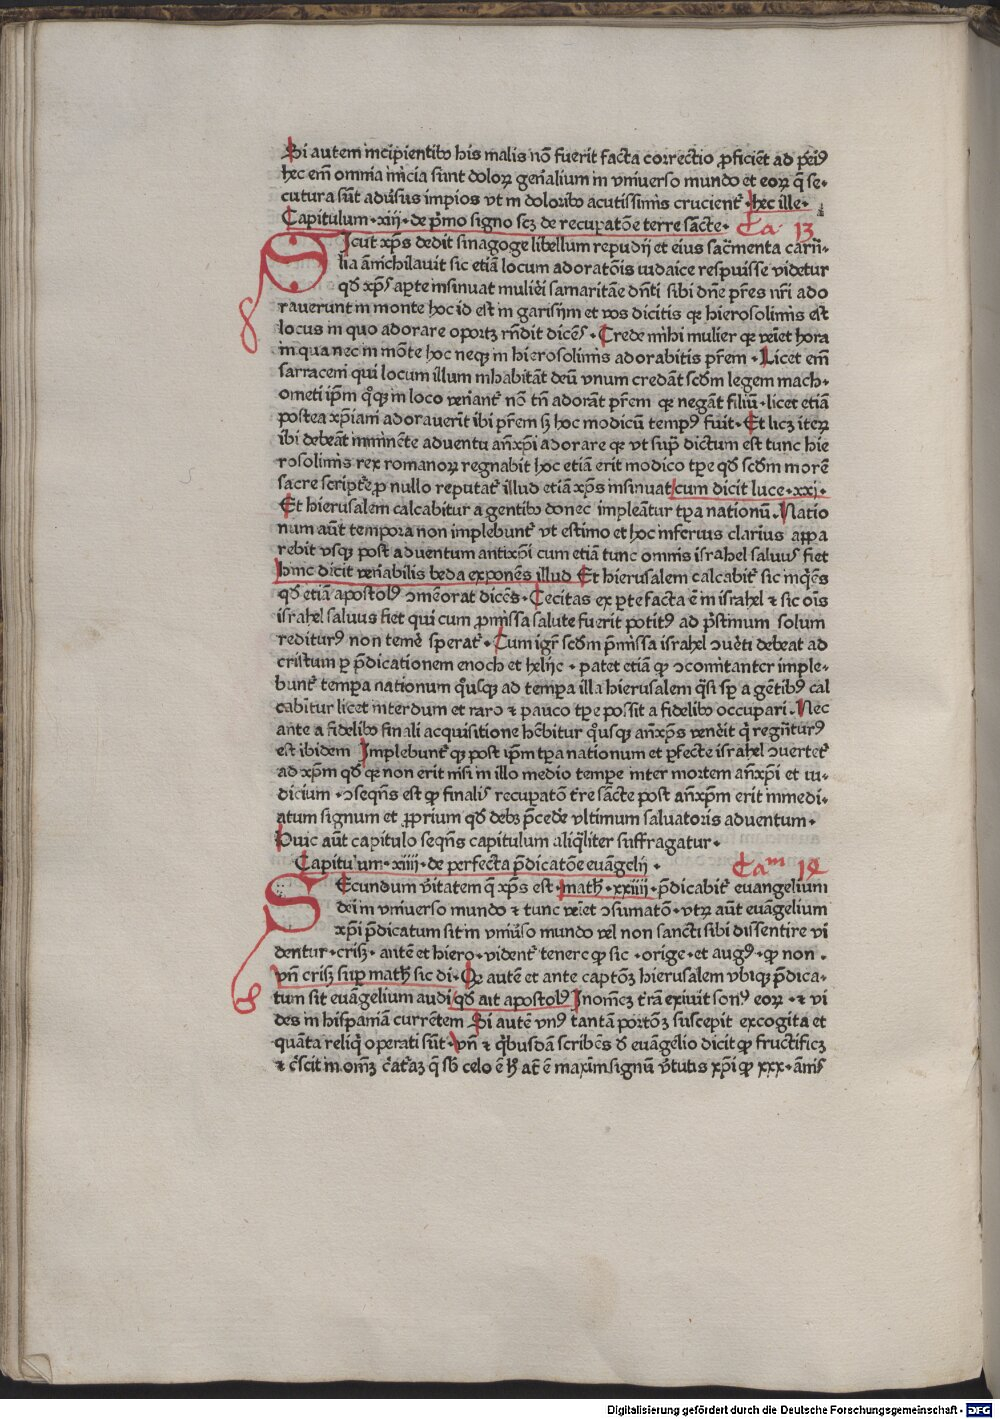 Si autem incipientibo his malis nō fuerit facta correctio ꝓficiēt ad ꝑeidꝰ
hec em̄ omnia inicia sunt doloꝝ geṅalium in vniuerso mundo et eoꝝ q̄ se⸗
cutura sūt aduͥsus impios vt in doloribo acutissimis crucientᷣ · hec ille ·
Capitulum · xiij · de pͥmo signo scꝫ de recupatōe terre sācte · Ca 13
Sicut xp̄s dedit sinagoge libellum repudij et eius sacͣmenta carn̄⸗
lia ānichilauit sic etiā locum adoratōis iudaice respuisse videtur
qd̄ xp̄s aꝑte insinuat mulieͥi samaritāe dn̄ti sibi dn̄e pr̄es nr̄i ado
rauerunt in monte hoc id est in garisijm et vos dicitis qꝛ hierosolimis est
locus in quo adorare oportꝫ rn̄dit dicēs · Crede mihi mulier qꝛ veīet hora
in qua nec in mōte hoc neqꝫ in hierosolimis adorabitis pr̄em · Licet em̄
sarraceni qui locum illum inhabitāt deū vnum credāt scd̄m legem mach⸗
ometi ip̄m qͦqꝫ in loco veṅantᷣ nō tn̄ adorāt pr̄em qꝛ negāt filiū · licet etiā
postea xp̄iani adorauerīt ibi pr̄em sꝫ hoc modicū tempꝰ fuit · Et licꝫ iteꝝ
ibi debeāt iminēte aduentu an̄xp̄i adorare qꝛ vt supͣ dictum est tunc hie
rosolimis rex romanoꝝ regnabit hoc etiā erit modico tꝑe qd̄ scd̄m morē
sacre scriptͬe ꝓ nullo reputatᷣ illud etiā xp̄s insinuat cum dicit luce · xxi ·
Et hierusalem calcabitur a gentibo donec impleātur tꝑa nationū · Natio
num aūt tempora non implebuntᷣ vt estimo et hoc inferius clarius appa
rebit vsqꝫ post aduentum antixp̄i cum etiā tunc omnis israhel saluus fiet
hinc dicit veṅabilis beda exponēs illud Et hierusalem calcabitᷣ sic inqͥēs
qd̄ etiā apostolꝰ ↄmēorat dicēs · Cecitas ex ꝑte facta ē in israhel ⁊ sic oīs
israhel saluus fiet qui cum ꝓmissa salute fuerit potitꝰ ad pͥstinum solum
rediturꝰ non temeͤ speratᷣ · Cum igr̄ scd̄m ꝓmissa israhel ↄuēti debeat ad
cristum ꝑ p̄dicationem enoch et helije · patet etiā ꝙ ↄcomitanter imple⸗
buntᷣ tempa nationum qͦusqꝫ ad tempa illa hierusalem qͣsi sꝑ a gētibꝰ cal
cabitur licet interdum et raro ⁊ pauco tꝑe possit a fidelibo occupari · Nec
ante a fidelibo finali acquisitione hēbitur qͦusqꝫ an̄xp̄s veneͥit qͥ regn̄turꝰ
est ibidem Implebuntᷣ qꝫ post ip̄m tꝑa nationum et ꝑfecte israhel ↄuertetᷣ
ad xp̄m qd̄ qꝛ non erit nisi in illo medio tempe inter mortem an̄xp̄i et iu⸗
dicium · ↄseqn̄s est ꝙ finalis recupatō tr̄e sācte post an̄xp̄m erit inmedi⸗
atum signum et ꝓprium qd̄ debꝫ p̄cedeͬ vltimum saluatoris aduentum ·
Huic aūt capitulo seqn̄s capitulum aliqͣliter suffragatur ·
Capitulum · xiiij · de perfecta p̄dicatōe euāgelij · Caᵐ 14
Secundum vͥitatem q̄ xp̄s est · math · xxiiij · p̄dicabitᷣ euangelium
dei in vniuerso mundo ⁊ tunc veīet ↄsumatō · vtꝝ aūt euāgelium
xp̄i p̄dicatum sit in vniuͥso mundo vel non sancti sibi dissentire vi
dentur · crisꝫ · autē et hiero · videntᷣ tenere ꝙ sic · orige · et augꝰ · ꝙ non ·
vn̄ crisꝫ sup math sic di · Qꝛ autē et ante captōꝫ hierusalem vbiqꝫ p̄dica⸗
tum sit euāgelium audi qd̄ ait apostolꝰ In om̄eꝫ tr̄ā exiuit sonꝰ eoꝝ · ⁊ vi
des in hispaniā currētem Si autē vnꝰ tantā portōꝫ suscepit excogita et
quāta reliqͥ operati sūt · vn̄ ⁊ qͥbusdā scribēs d̄ euāgelio dicit ꝙ fructificꝫ
⁊ cͬscit in om̄ꝫ cͬatͬāꝫ q̄ sb̄ celo ē hͦ at̄ ē maxim signū vͥtutis xp̄i ꝙ xxx · ānis
Digitalisierung gefördert durch die Deutsche Forschungsgemeinschaft - DFG